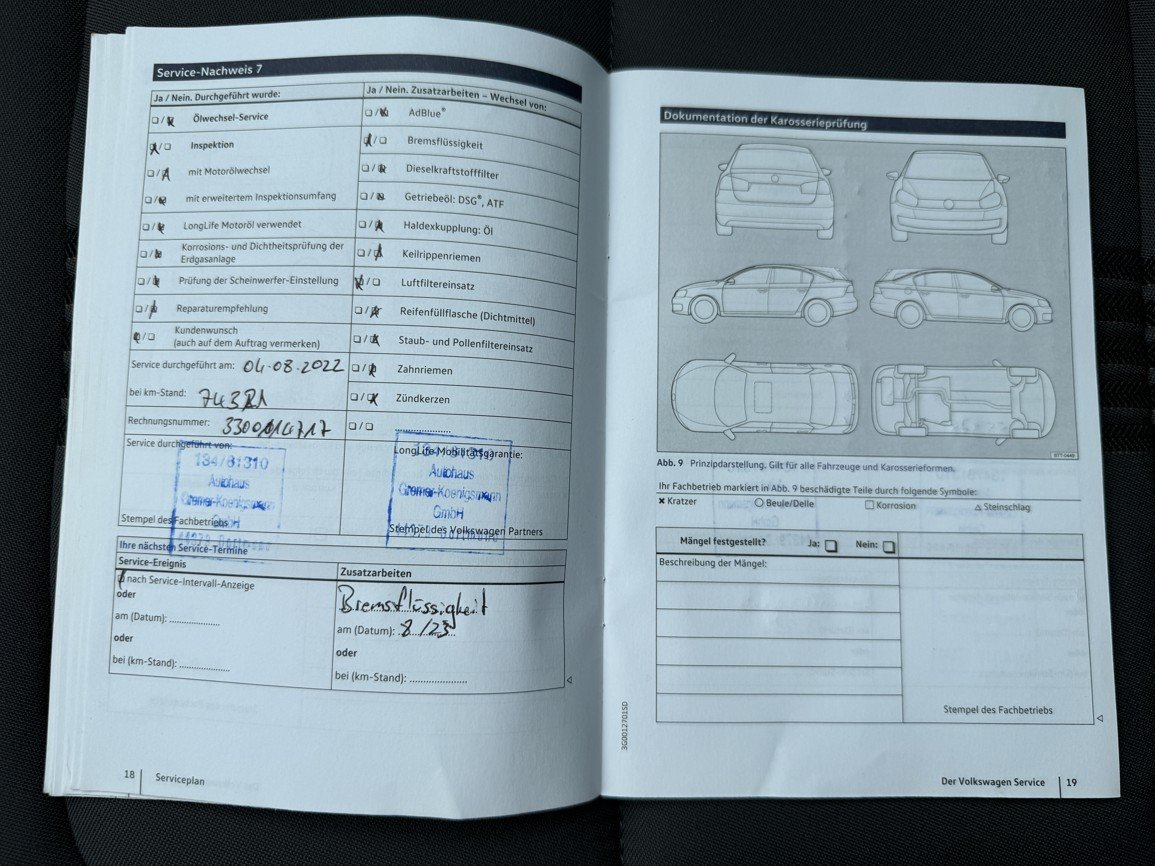 Service-Nachweis 7
Ja / Nein. Durchgeführt wurde:
Ölwechsel-Service
Inspektion
mit Motorölwechsel
mit erweitertem Inspektionsumfang
LongLife Motoröl verwendet
Korrosions- und Dichtheitsprüfung der
Erdgasanlage
Prüfung der Scheinwerfer-Einstellung
Reparaturempfehlung
Kundenwunsch
(auch auf dem Auftrag vermerken)
Service durchgeführt am: 04.08.2022
bei km-Stand:
Rechnungsnummer:
Service durchgeführt von:
134/81310
Autohaus
Gremer-Koenigsmann
GmbH
Stempel des Fachbetriebs
Ja / Nein. Zusatzarbeiten – Wechsel von:
AdBlue®
Bremsflüssigkeit
Dieselkraftstofffilter
Getriebeöl: DSG®, ATF
Haldexkupplung: Öl
Keilrippenriemen
Luftfiltereinsatz
Reifenfüllflasche (Dichtmittel)
Staub- und Pollenfiltereinsatz
Zahnriemen
Zündkerzen
LongLife Mobilitätsgarantie:
Autohaus
Gremer-Koenigsmann
GmbH
Stempel des Volkswagen Partners
Ihre nächsten Service-Termine
Service-Ereignis
nach Service-Intervall-Anzeige
oder
am (Datum): ..................
oder
bei (km-Stand): ..................
Zusatzarbeiten
Bremsflüssigkeit
am (Datum): 8/23
oder
bei (km-Stand): ....................
18 Serviceplan
Dokumentation der Karosserieprüfung
BTT-0449
Abb. 9 Prinzipdarstellung. Gilt für alle Fahrzeuge und Karosserieformen.
Ihr Fachbetrieb markiert in Abb. 9 beschädigte Teile durch folgende Symbole:
Kratzer Beule/Delle Korrosion Steinschlag
Mängel festgestellt? Ja: Nein:
Beschreibung der Mängel:
Stempel des Fachbetriebs
3G0012701SD
Der Volkswagen Service 19